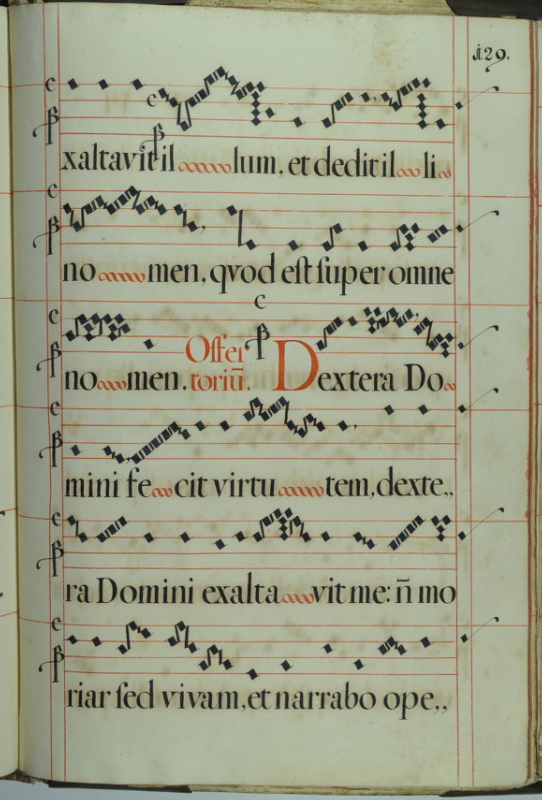 129.
xaltavit il lum, et dedit il li
no men, qvod eſt ſuper omne
no men. Offer toriū. Dextera Do
mini fe cit virtu tem, dexte,,
ra Domini exalta vit me: n̄ mo
riar ſed vivam, et narrabo ope,,